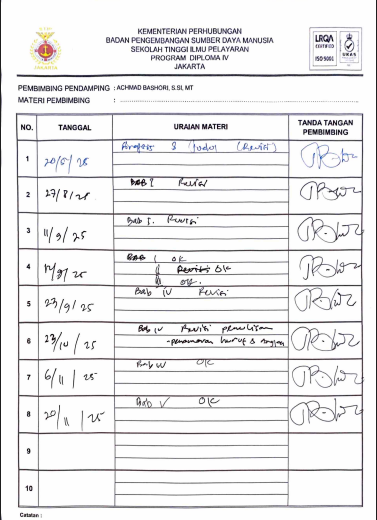 KEMENTERIAN PERHUBUNGAN
BADAN PENGEMBANGAN SUMBER DAYA MANUSIA
SEKOLAH TINGGI ILMU PELAYARAN
PROGRAM DIPLOMA IV
JAKARTA
LRQA
CERTIFIED
ISO 9001
UKAS
PEMBIMBING PENDAMPING : ACHMAD BASHORI, S.SI, MT
MATERI PEMBIMBING :
NO. TANGGAL URAIAN MATERI TANDA TANGAN PEMBIMBING
1 20/5/25 3 Judul (Revisi)
2 27/8/25 Bab I Revisi
3 11/9/25 Bab I. Revisi
4 Bab I OK
Revisi OK
OK.
5 23/9/25 Bab IV Revisi
6 23/10/25 Bab IV Revisi penulisan
- penomoran huruf &
7 6/11/25 Bab IV OK
8 20/11/25 Bab V OK
9
10
Catatan :